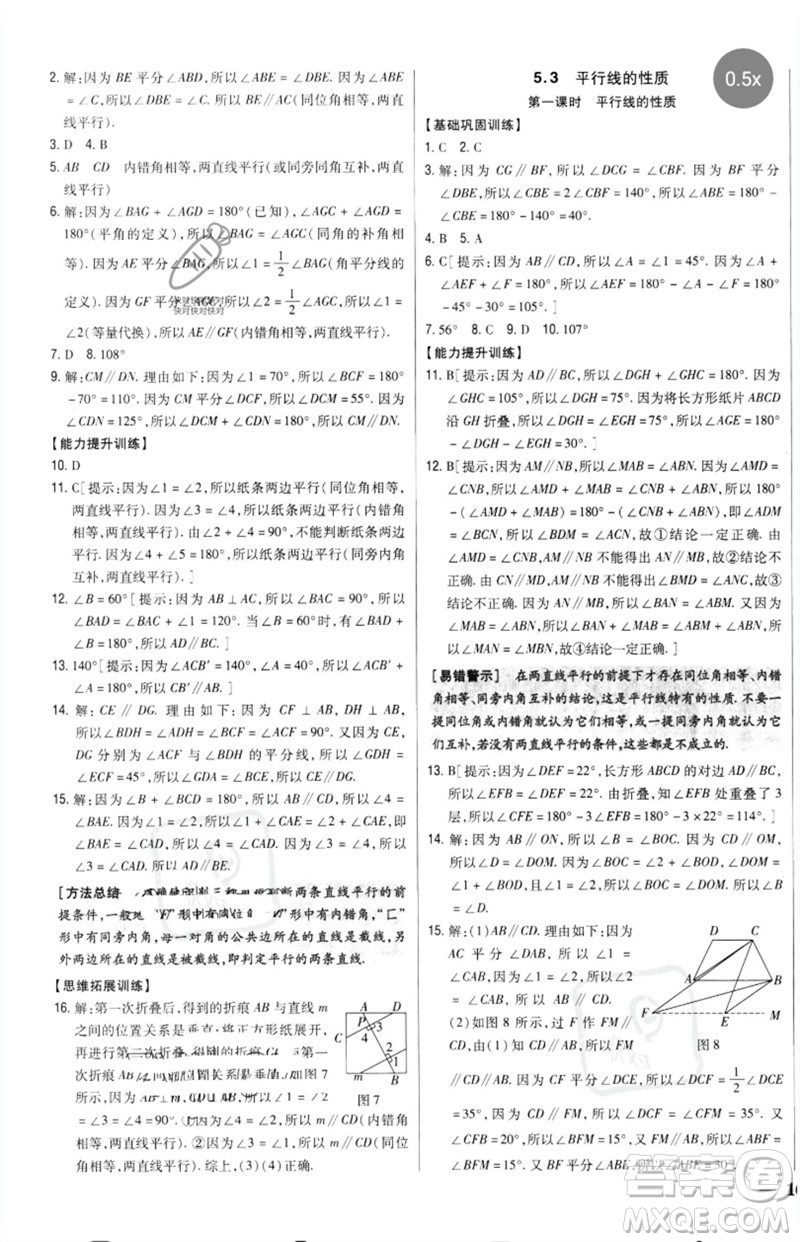 2. 解:因为 BE 平分∠ABD,所以∠ABE = ∠DBE. 因为∠DBE
= ∠C,所以∠ABE = ∠C,所以 BE∥AC(同位角相等,两直
线平行).
3. D　4. B
5. AB　CD　内错角相等,两直线平行(或同旁内角互补,两直
线平行)
6. 解:因为∠BAG + ∠AGD = 180°(已知),∠AGC + ∠AGD =
180°(平角的定义),所以∠BAG = ∠AGC(同角的补角相
等). 因为 AE 平分∠BAG,所以∠1 = 1/2∠BAG(角平分线的
定义). 因为 GF 平分∠AGC,所以∠2 = 1/2∠AGC,所以∠1 =
∠2(等量代换),所以 AE∥GF(内错角相等,两直线平行).
7. D　8. 108°
9. 解:CM∥DN. 理由如下:因为∠1 = 70°,所以∠BCF = 180°
- 70° = 110°. 因为 CM 平分∠DCF,所以∠DCM = 55°. 因为
∠CDN = 125°,所以∠DCM + ∠CDN = 180°,所以 CM∥DN.
【能力提升训练】
10. D
11. C[提示:因为∠1 = ∠2,所以纸条两边平行(同位角相等,
两直线平行). 因为∠3 = ∠4,所以纸条两边平行(内错角
相等,两直线平行). 由∠2 + ∠4 = 90°,不能判断纸条两边
平行. 因为∠4 + ∠5 = 180°,所以纸条两边平行(同旁内角
互补,两直线平行). ]
12. ∠B = 60°[提示:因为 AB ⊥ AC,所以∠BAC = 90°,所以
∠BAD = ∠BAC + ∠1 = 120°. 当∠B = 60°时,∠BAD +
∠B = 180°,所以 AD∥BC. ]
13. 140°[提示:因为∠ACB′ = 140°,∠A = 40°,所以∠ACB′ +
∠A = 180°,所以 CB′∥AB. ]
14. 解:CE ∥ DG. 理由如下:因为 CF ⊥ AB, DH ⊥ AB, 所
以∠ACF = 90°,∠ADH = ∠BDH = 90°. 又因为 CE,
DG 分别为∠ACF 与∠BDH 的平分线,所以∠ACE
= ∠ECF = 45°,所以∠GDA = ∠ECB,所以 CE∥DG.
15. 解:因为∠B + ∠BCD = 180°,所以 AB∥CD,所以∠4 =
∠BAE. 因为∠1 = ∠2,所以∠1 + ∠CAE = ∠2 + ∠CAE,即
∠BAE = ∠CAD,所以∠4 = ∠CAD. 因为∠3 = ∠4,所以
∠3 = ∠CAD. 所以 AD∥BE.
【方法总结】
判断两条直线平行的前
提条件,一般地“F”形中有同位角 形中有内错角,“匚”
形中有同旁内角,每一对角的公共边所在的直线是截线,另
外两边所在的直线是被截线,即判定平行的两条直线.
【思维拓展训练】
16. 解:第一次折叠后,得到的折痕 AB 与直线 m
之间的位置关系是垂直;将正方形纸展开,
再进行第二次折叠,得到的折痕 CD 与第一
次折痕 位置关系 如图 7
所示,因为 AB⊥m,CD⊥ 所以
= ∠3 = ∠4 = 90°. ①因为∠3 = ∠1,所以 m∥CD(内错角
相等,两直线平行). ②因为∠4 = ∠2,所以 m∥CD(同位角
相等,两直线平行). 综上,(3)(4)正确.
C
A
D
P
3
4
2
1
m
B
图 7
快对快对快对
快对快对快对
5.3　平行线的性质
第一课时　平行线的性质
0.5x
【基础巩固训练】
1. C　2. C
3. 解:因为 CG∥BF,所以∠DCG = ∠CBF. 因为 BF 平分
∠DBE,所以∠CBF = ∠EBF = 70°,所以∠ABE = 180° -
∠CBF - ∠EBF = 180° - 140° = 40°.
4. B　5. A
6. C[提示:因为 AB∥CD,所以∠A = ∠AFD = 45°. 因为
∠AEF + ∠F + ∠AFE = 180°,所以∠AEF = 180°
- 45° - 30° = 105°. ]
7. 56°　8. C　9. D　10. 107°
【能力提升训练】
11. B[提示:因为 AD∥BC,所以∠DGH + ∠GHC = 180°. 因为
∠GHC = 105°,所以∠DGH = 75°. 因为将长方形纸片 ABCD
沿 GH 折叠,所以∠EGH = ∠DGH = 75°,所以∠AGE = 180°
- ∠DGH - ∠EGH = 30°. ]
12. B[提示:因为 AM∥NB,所以∠MAB = ∠ABN. 因为∠AMD
= ∠CNB,所以∠AMD + ∠MAB = ∠CNB + ∠ABN,所以 180°
- (∠AMD + ∠MAB) = 180° - (∠CNB + ∠ABN),即∠ADM
= ∠ACN,所以∠ADM = ∠ACN,故①结论一定正确. 由∠AMD
= ∠CNB,AM∥NB 不能得出 AN∥MB,故②结论不正确.
由∠AMD = ∠CNB,AM∥NB 不能得出∠AMD = ∠ANC,故③
结论不正确. 因为 AN∥MB,所以∠NAB = ∠ABM. 又因为
∠MAN = ∠MAB - ∠NAB,∠NBM = ∠ABN - ∠ABM,所以
∠MAN = ∠MBN,故④结论一定正确. ]
【易错警示】　在两直线平行的前提下才存在同位角相等、内错
角相等、同旁内角互补的结论,这是平行线特有的性质. 不要一
提同位角或内错角就认为它们相等,或一提同旁内角就认为它
们互补,若没有两直线平行的条件,这些都是不成立的.
13. B[提示:因为∠DEF = 22°,长方形 ABCD 的对边 AD∥BC,
所以∠EFB = ∠DEF = 22°. 由折叠,知∠EFB 处重叠了 3
层,所以∠CFE = 180° - 3∠EFB = 180° - 3 × 22° = 114°. ]
14. 解:因为 AB∥ON,所以∠2 = ∠BOC. 因为 CD∥OM,
所以∠1 = ∠DOM. 因为∠1 = ∠2,所以∠BOC = ∠DOM,
所以∠3 + ∠BOC = ∠4 + ∠DOM. 因为∠BOM = 90°,所以
∠CON = 90°.
15. 解:(1)AB∥CD. 理由如下:因为
AC 平分∠DAB,所以∠DAC
= ∠CAB,因为∠1 = ∠DAC,所以∠1
= ∠CAB,所以 AB∥CD.
(2)如图 8 所示,过 F 作 FM∥CD
∥AB. 因为 CF 平分∠DCE,所以∠DCF = 1/2∠DCE =
35°,所以∠CFM = 35°. 又因为
∠CFB = 20°,所以∠BFM = 15°,所以∠ABF
= ∠BFM = 15°. 又
D
C
A
B
F
E
M
图 8
答案圈